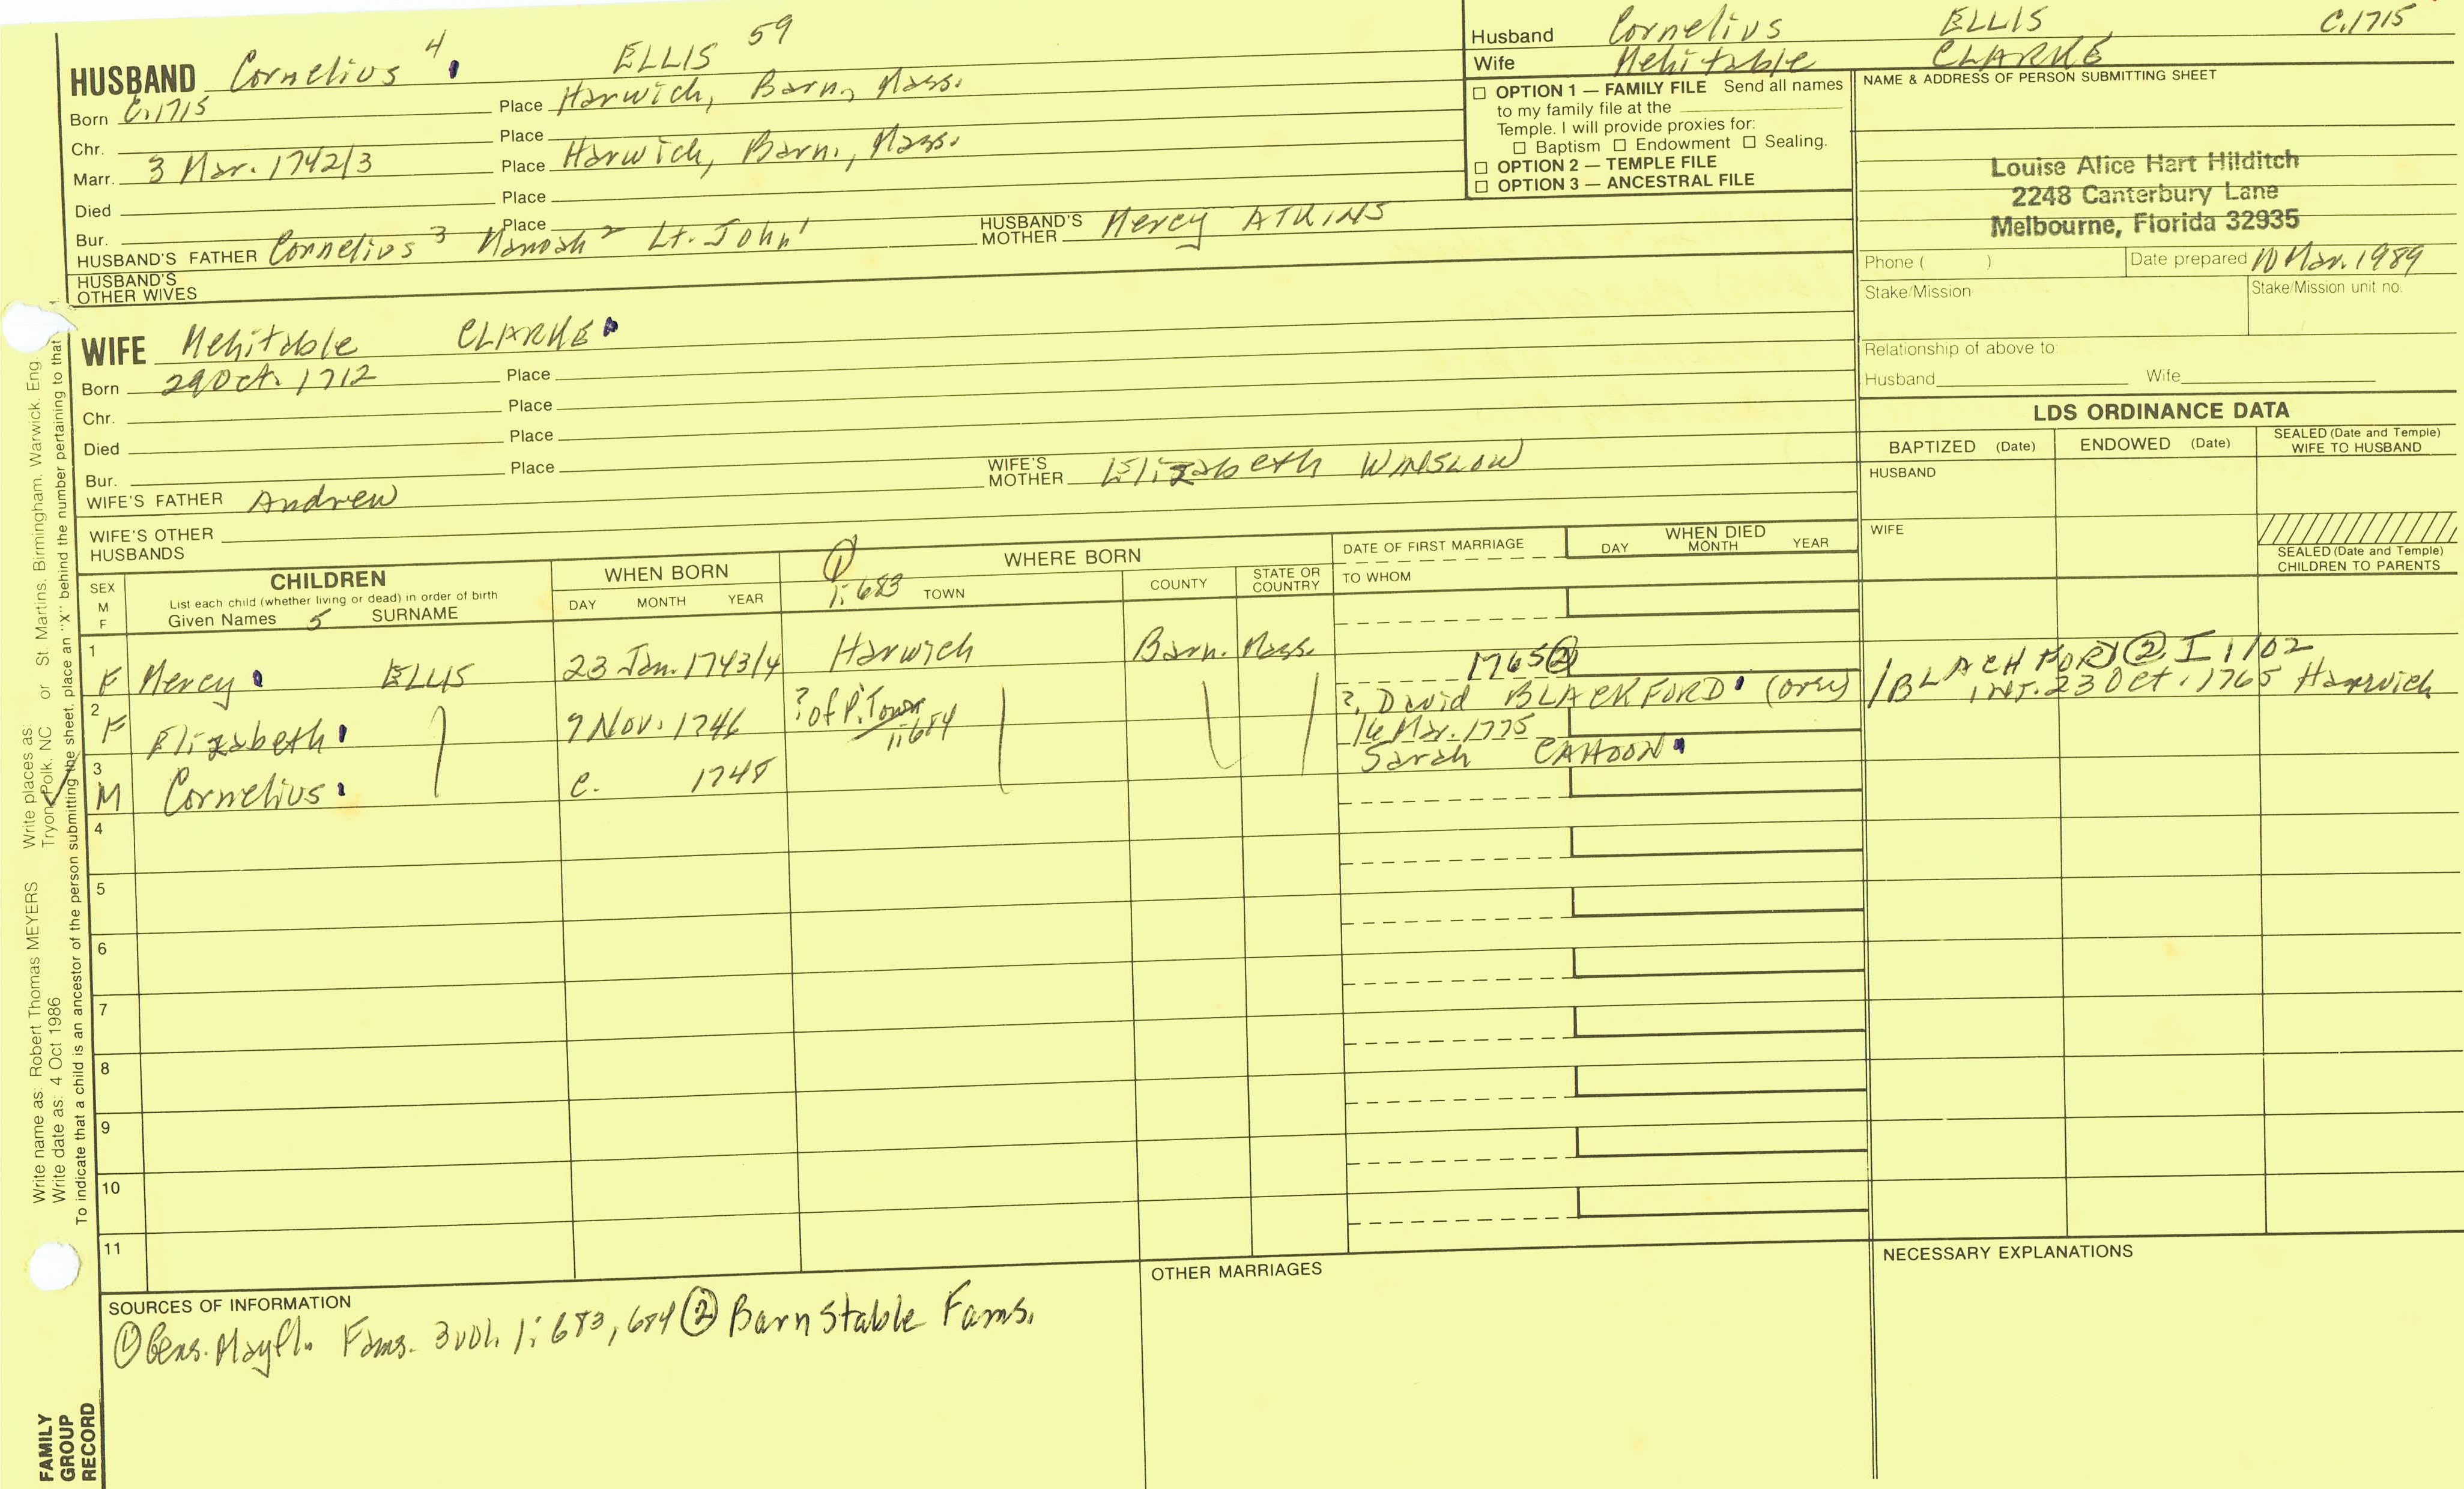 HUSBAND Cornelius 4 ELLIS 59
Born C.1715 Place Harwich, Barn, Mass.
Chr. Place
Marr. 3 Mar. 1742/3 Place Harwich, Barn., Mass.
Died Place
Bur. Place
HUSBAND'S FATHER Cornelius 3 Manoah 2 Lt. John 1 HUSBAND'S MOTHER Mercy ATKINS
HUSBAND'S OTHER WIVES
WIFE Mehitable CLARKE
Born 29 Oct. 1712 Place
Chr. Place
Died Place
Bur. Place
WIFE'S FATHER Andrew WIFE'S MOTHER Elizabeth WINSLOW
WIFE'S OTHER HUSBANDS
Husband Cornelius ELLIS C.1715
Wife Mehitable CLARKE
☐ OPTION 1 — FAMILY FILE Send all names
to my family file at the
Temple. I will provide proxies for:
☐ Baptism ☐ Endowment ☐ Sealing.
☐ OPTION 2 — TEMPLE FILE
☐ OPTION 3 — ANCESTRAL FILE
NAME & ADDRESS OF PERSON SUBMITTING SHEET
Louise Alice Hart Hilditch
2248 Canterbury Lane
Melbourne, Florida 32935
Phone ( ) Date prepared 10 Mar. 1989
Stake/Mission Stake/Mission unit no.
Relationship of above to:
Husband Wife
LDS ORDINANCE DATA
BAPTIZED (Date) ENDOWED (Date) SEALED (Date and Temple) WIFE TO HUSBAND
HUSBAND
WIFE
SEALED (Date and Temple) CHILDREN TO PARENTS
SEX M F
CHILDREN
List each child (whether living or dead) in order of birth
Given Names 5 SURNAME
WHEN BORN
DAY MONTH YEAR
① 1:683
WHERE BORN
TOWN COUNTY STATE OR COUNTRY
DATE OF FIRST MARRIAGE
TO WHOM
WHEN DIED
DAY MONTH YEAR
1 F Mercy ELLIS 23 Jan. 1743/4 Harwich Barn. Mass.
1765②
2 F Elizabeth 9 Nov. 1746 ? of P. Town 1:684 ?. David BLACKFORD (ors) /BLACHFORD ② I:102
INT. 23 Oct. 1765 Harwich
16 Mar. 1775
3 M Cornelius C. 1748 Sarah CAHOON
4
5
6
7
8
9
10
11
SOURCES OF INFORMATION
① Gens. Mayfl. Fams. 3 vol. 1:683, 684 ② Barnstable Fams.
OTHER MARRIAGES
NECESSARY EXPLANATIONS
Write name as: Robert Thomas MEYERS Write places as: St. Martins, Birmingham, Warwick, Eng.
Write date as: 4 Oct 1986 Tryon, Polk, NC or
To indicate that a child is an ancestor of the person submitting the sheet, place an "X" behind the number pertaining to that
FAMILY
GROUP
RECORD